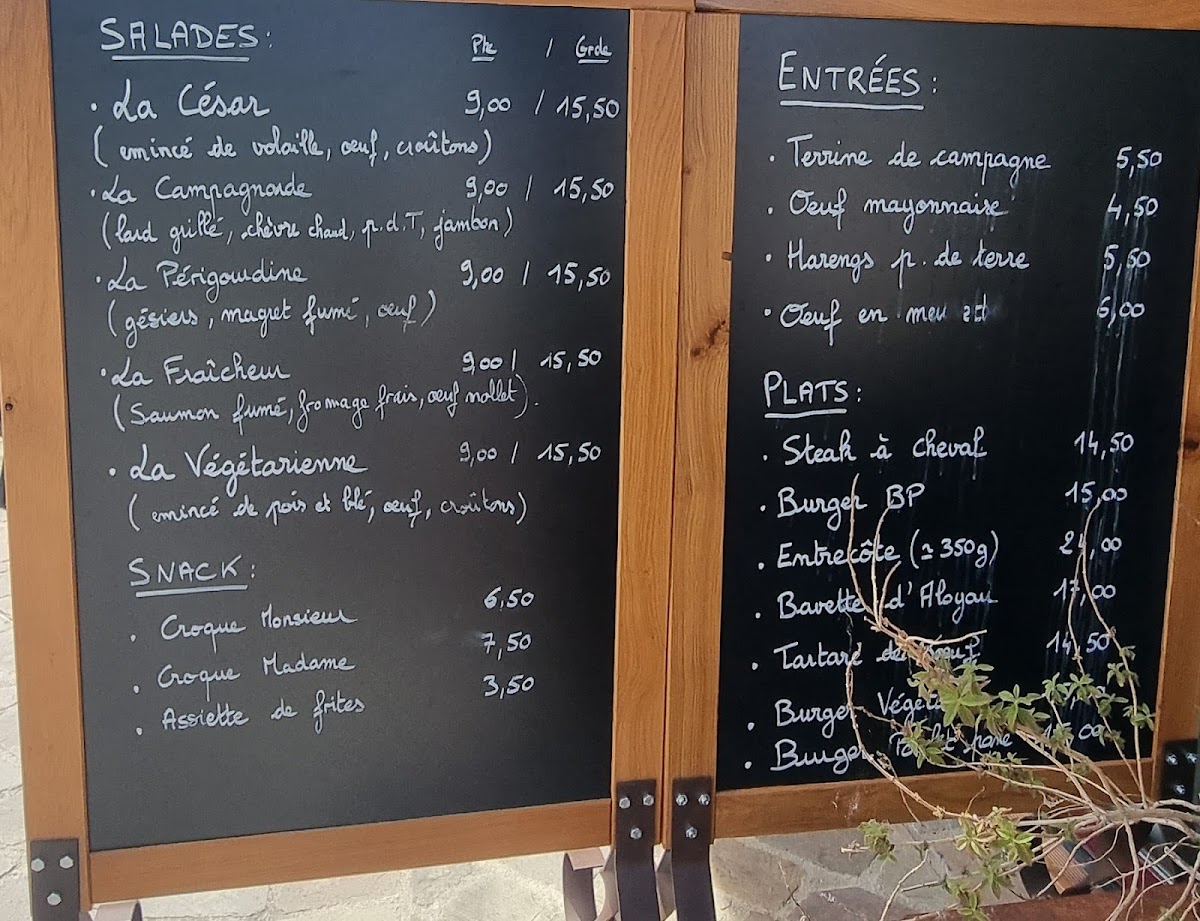 SALADES : Pte / Grde
· La César 9,00 / 15,50
( emincé de volaille, œuf, croûtons)
· La Campagnarde 9,00 / 15,50
(lard grillé, chèvre chaud, p.d.T, jambon)
· La Périgourdine 9,00 / 15,50
(gésiers, magret fumé, œuf)
· La Fraîcheur 9,00 / 15,50
(Saumon fumé, fromage frais, œuf mollet).
· La Végétarienne 9,00 / 15,50
( emincé de pois et blé, œuf, croûtons)
SNACK :
· Croque Monsieur 6,50
· Croque Madame 7,50
· Assiette de frites 3,50
ENTRÉES :
· Terrine de campagne 5,50
· Oeuf mayonnaise 4,50
· Harengs p. de terre 5,50
· Oeuf en 6,00
PLATS :
· Steak à cheval 14,50
· Burger BP 15,00
· Entrecôte (≃ 350g) 24,00
· Bavette d'Aloyau 17,00
· Tartare de bœuf 14,50
· Burger
· Burger pané